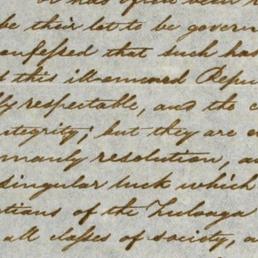 be their lot to be govern
onfessed that such has
t this ill-omened Repu
ly respectable, and the c
ntegrity; but they are e
manly resolution, a
singular luck which
tions of the Tulooga
all classes of society, a